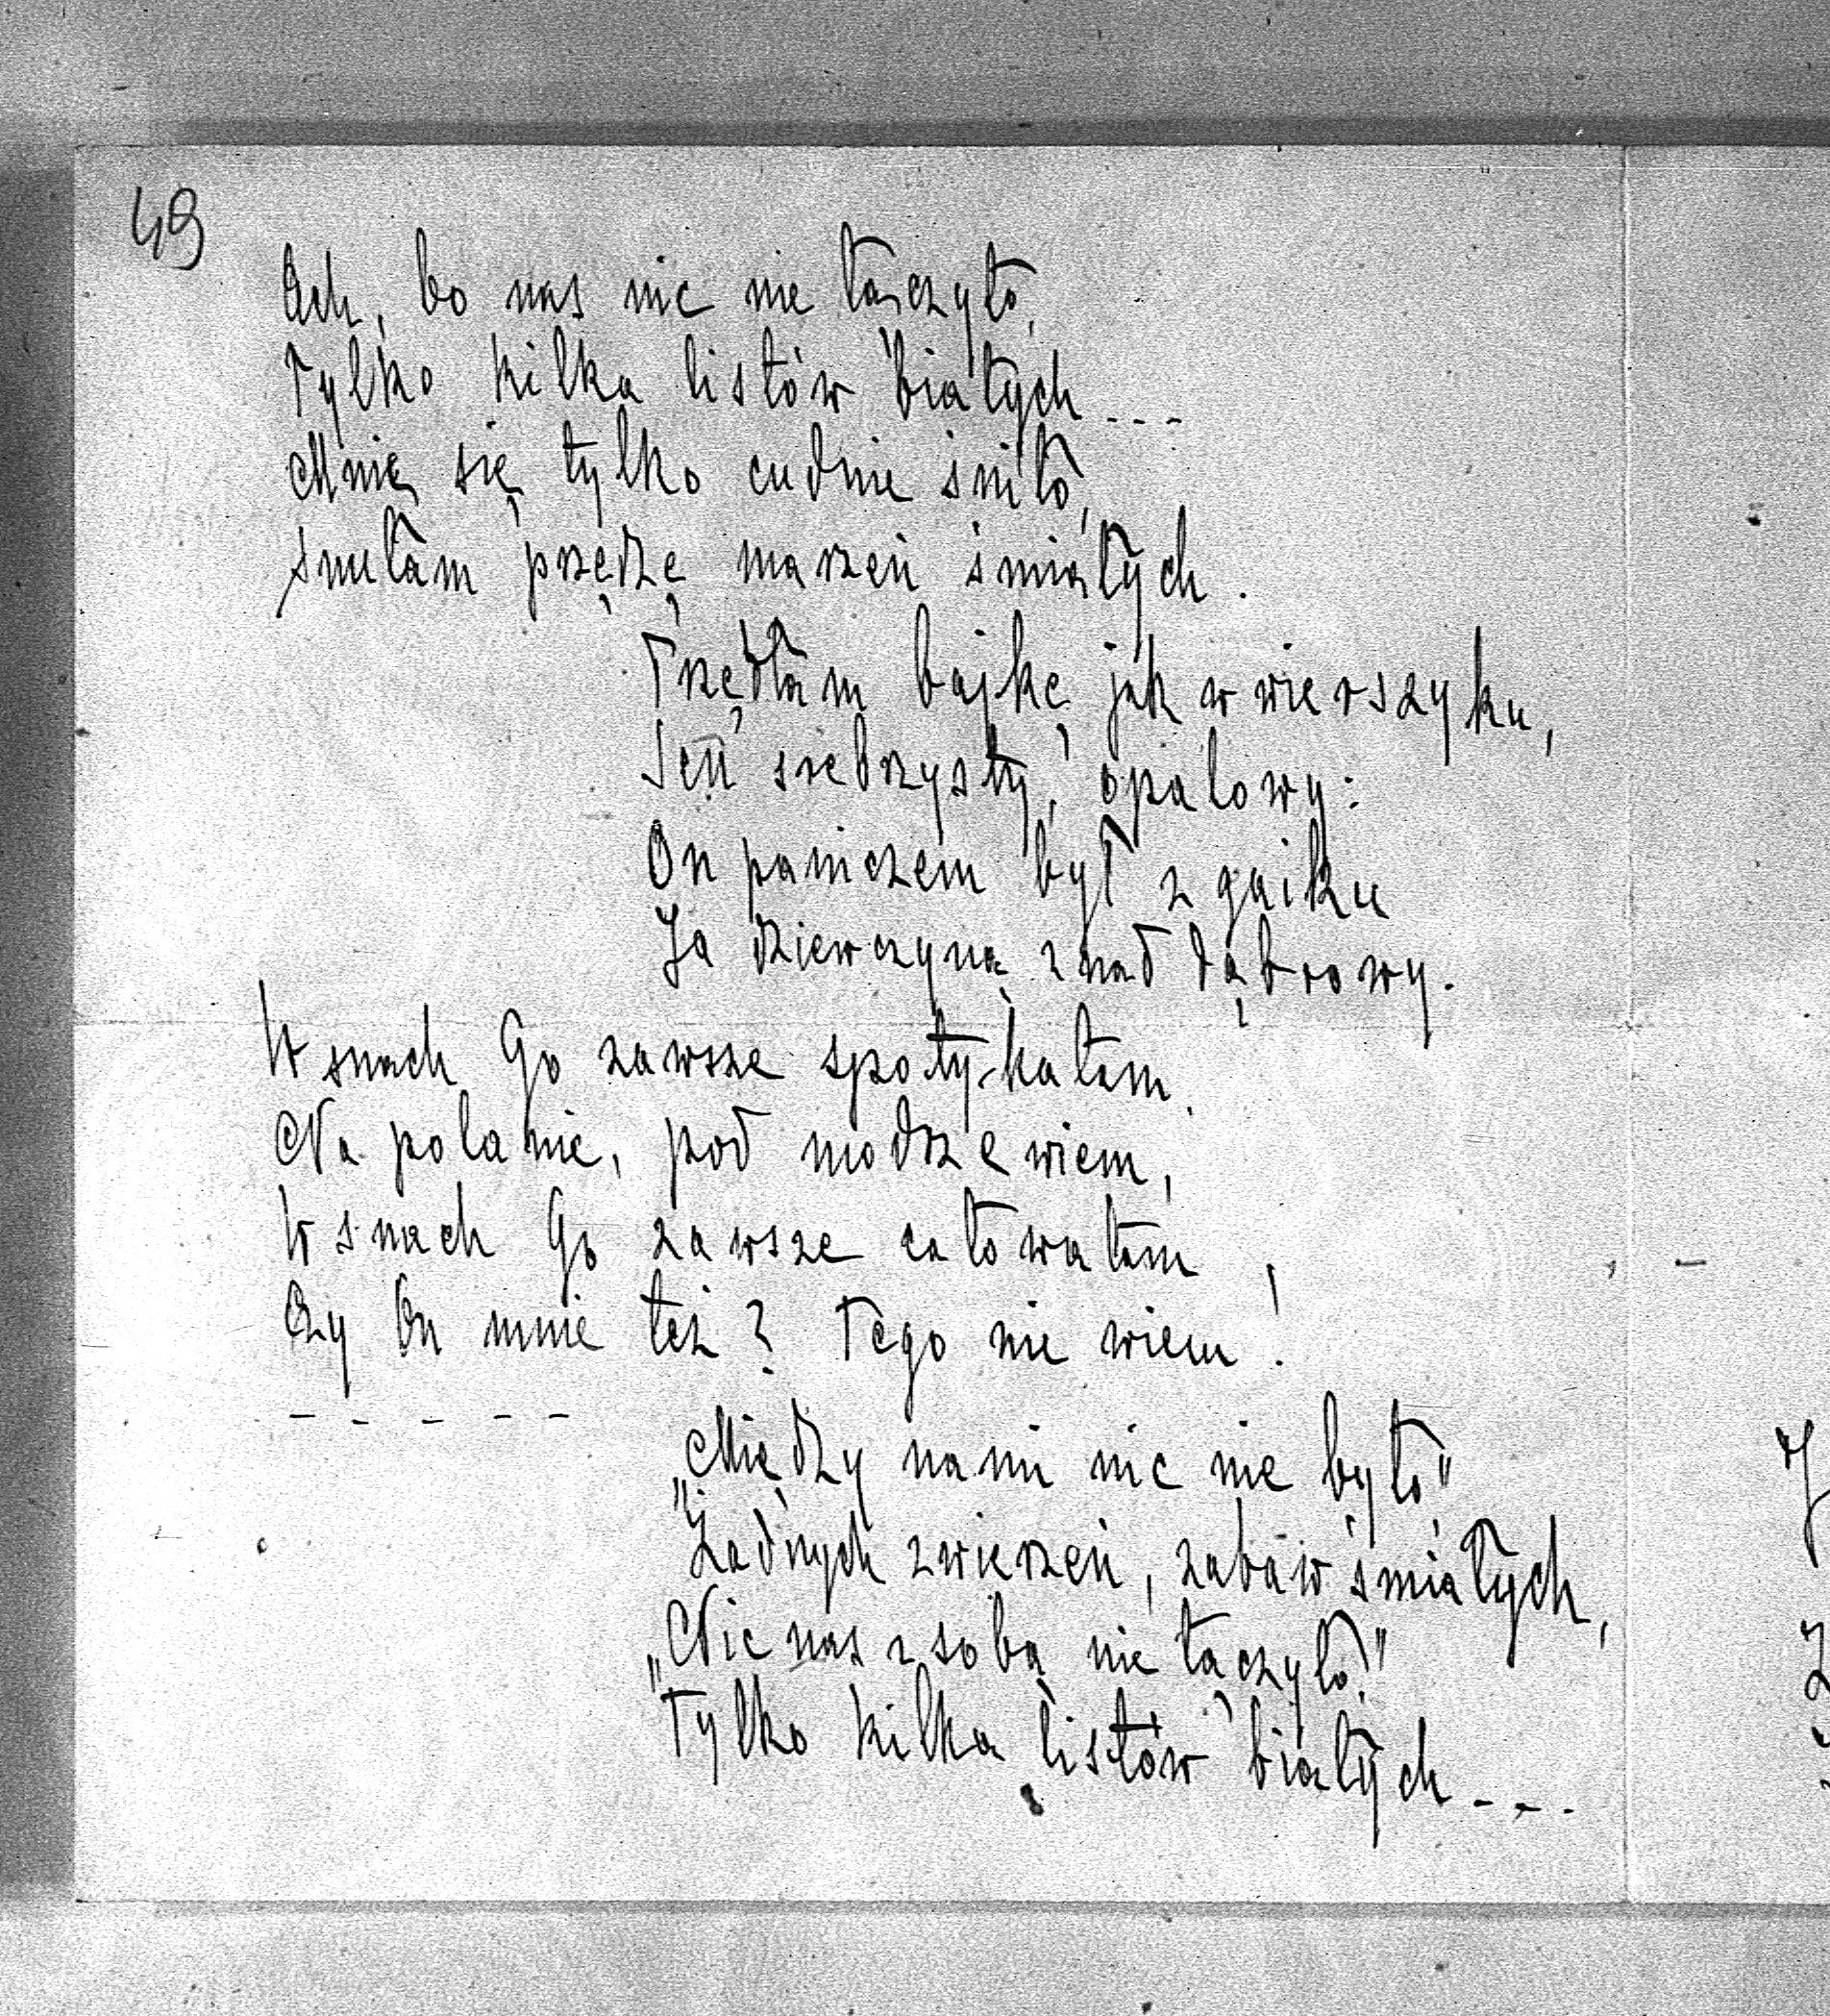 49
Ach, bo nas nic nie łączyło,
Tylko kilka listów białych...
Mnie się tylko cudnie śniło,
Snułam przędzę marzeń śmiałych.
Przędłam bajkę jak w wierszyku,
Sen srebrzysty, opalowy:
On paniczem był z gaiku
Ja dziewczyną z nad dąbrowy.
W snach Go zawsze spotykałam
Na polanie, pod modrzewiem,
W snach Go zawsze całowałam,
Czy On mnie też? Tego nie wiem!
- - - - -
„Między nami nic nie było"
„Żadnych zwierzeń, zabaw śmiałych,
„Nic nas z sobą nie łączyło!"
Tylko kilka listów białych...